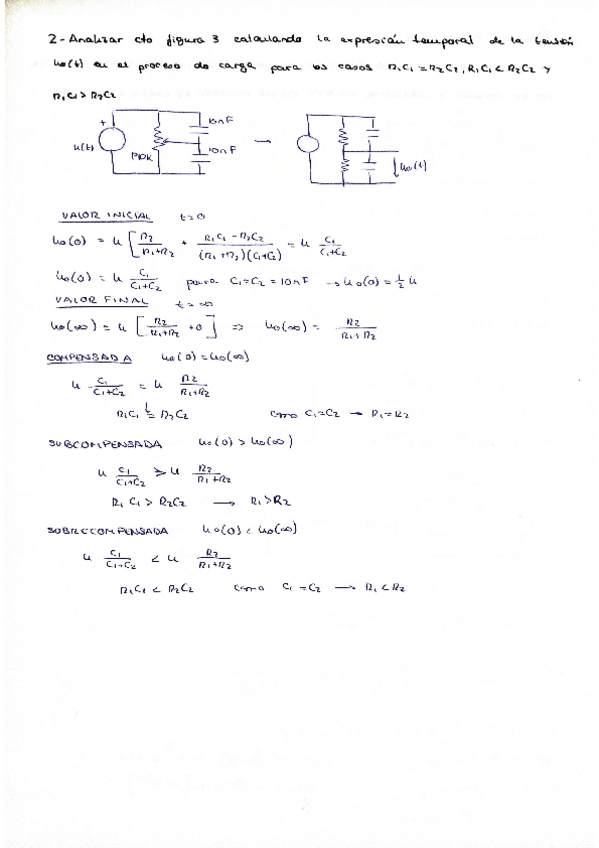 2-Analizar cto figura 3 calculando la expresión temporal de la tensión
uo(t) en el proceso de carga para los casos R1C1 = R2C2, R1C1 < R2C2 y
R1C1 > R2C2
+ u(t) P10K 10nF 10nF → uo(t)
VALOR INICIAL t=0
uo(0) = u [ R2/(R1+R2) + (R1C1 - R2C2)/((R1+R2)(C1+C2)) = u C1/(C1+C2)
uo(0) = u C1/(C1+C2) para C1=C2 = 10nF → uo(0) = 1/2 u
VALOR FINAL t = ∞
uo(∞) = u [ R2/(R1+R2) + 0 ] ⇒ uo(∞) = R2/(R1+R2)
COMPENSADA uo(0) = uo(∞)
u C1/(C1+C2) = u R2/(R1+R2)
R1C1 = R2C2 como C1=C2 → R1=R2
SUBCOMPENSADA uo(0) > uo(∞)
u C1/(C1+C2) > u R2/(R1+R2)
R1C1 > R2C2 → R1>R2
SOBRECOMPENSADA uo(0) < uo(∞)
u C1/(C1+C2) < u R2/(R1+R2)
R1C1 < R2C2 como C1 = C2 → R1 < R2